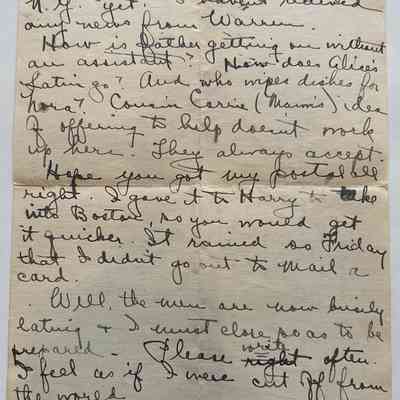 N.Y. yet. I haven't received
any news from Warren.
How is father getting on without
an assistant? How does Alice's
Latin go? And who wipes dishes for
Nora? Cousin Carrie (Mamis) idea
of offering to help doesn't work
up here. They always accept.
Hope you got my postal all
right. I gave it to Harry to take
into Boston, so you would get
it quicker. It rained so Friday
that I didn't go out to mail a
card.
Well, the men are now busily
eating + I must close so as to be
prepared. Please write right often.
I feel as if I were cut off from
the world